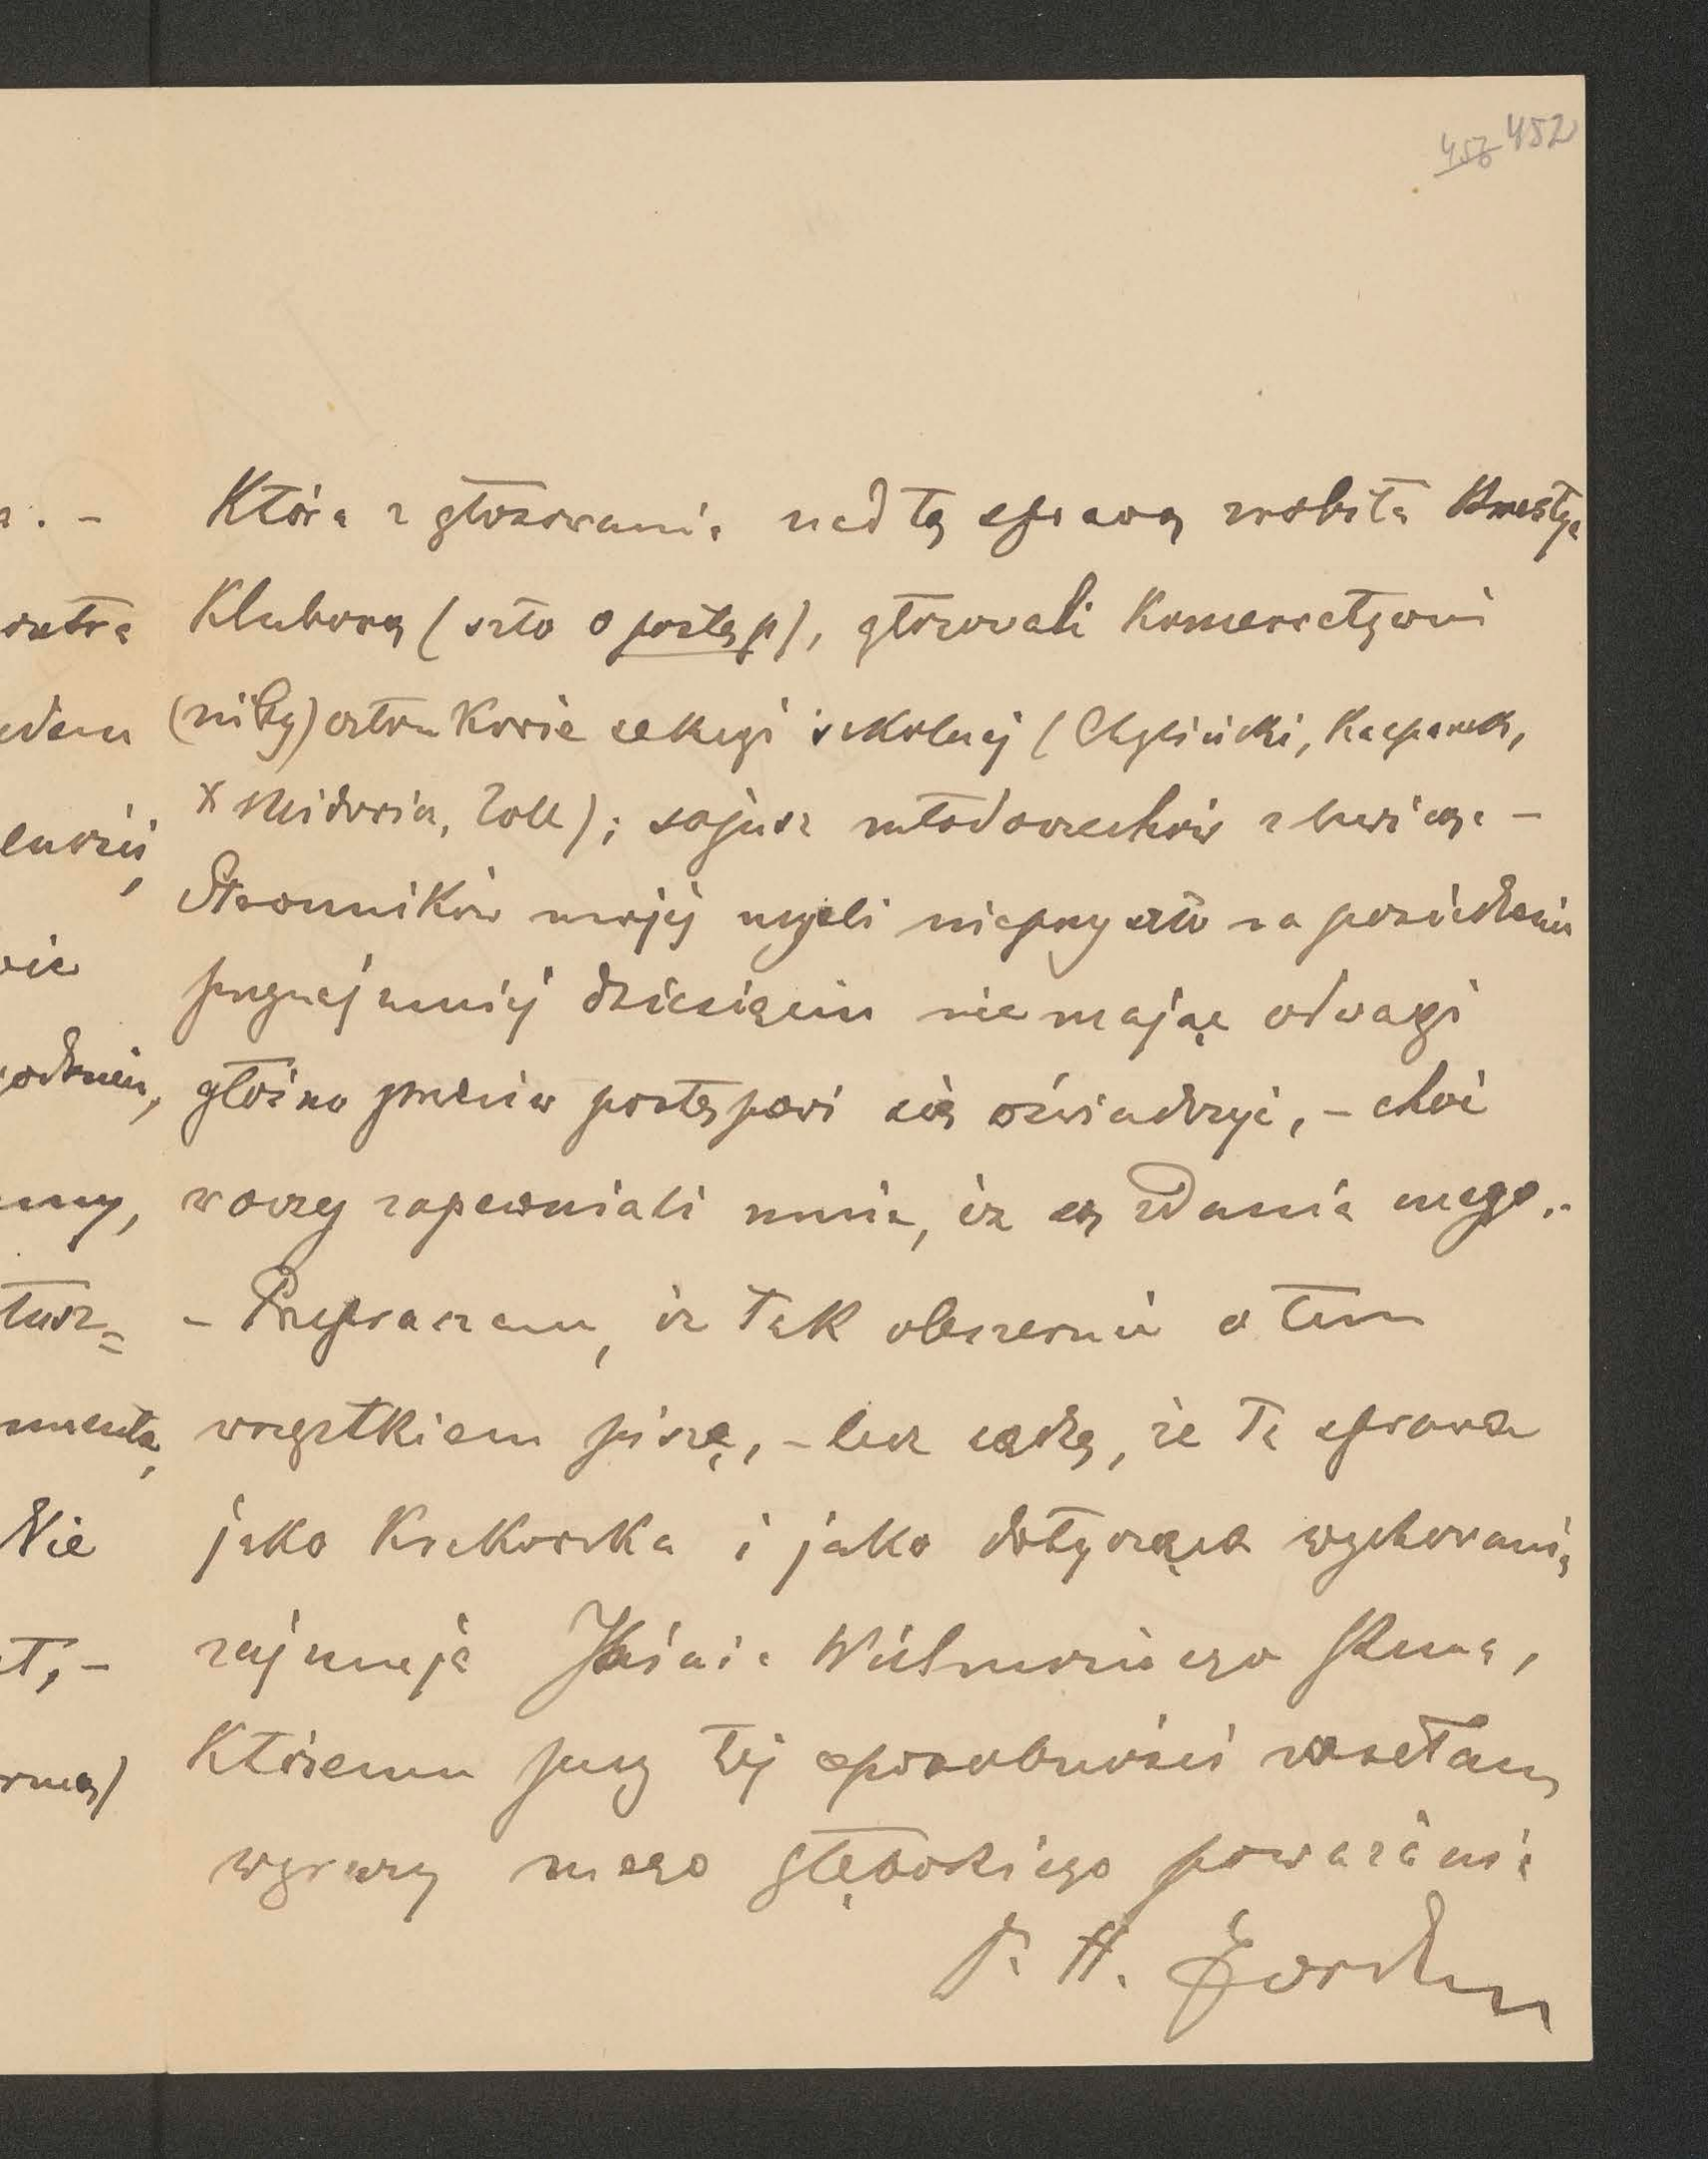 456 452
Która z głosowania nad tą sprawą zrobiła Kwestyę
Klubową (szło o postęp), głosowali Konserwatywni
(niby) członkowie sekcyi szkolnej (Chyliński, Kasparek,
X Midowicz, Zoll); sojusz młodoczechów z lewicą –
Stronników mojej myśli nieprzyszło na posiedzenie
przynajmniej dziesięciu nie mając odwagi
głośno przeciw postępowi się oświadczyć, – choć
w oczy zapewniali mnie, iż są zdania mego. –
– Przepraszam, iż tak obszernie o tem
wszystkiem piszę, – lecz sądzę, że ta sprawa
jako Krakowska i jako dotycząca wychowania
zajmuje JWielmożnego Pana,
Któremu przy tej sposobności zasełam
wyrazy mego głębokiego poważania
Dr H. Jordan
a. –
edem
wie
Nie
t, –